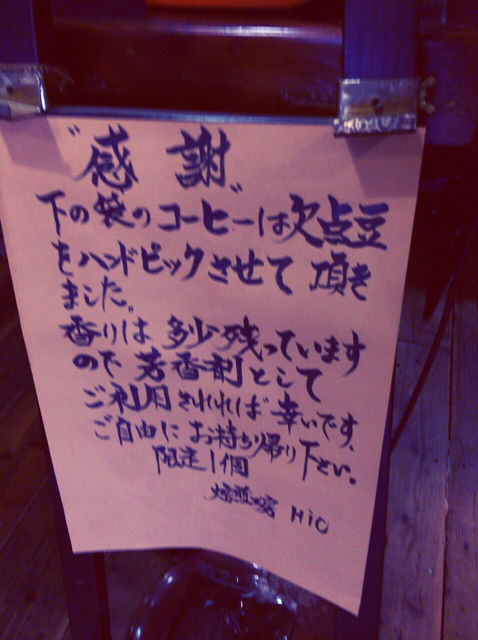 "感謝"
下の袋のコーヒーは欠点豆
をハンドピックさせて頂き
ました。
香りは多少残っています
ので芳香剤として
ご利用されれば幸いです。
ご自由にお持ち帰り下さい。
限定1個
焙煎工房 HiO